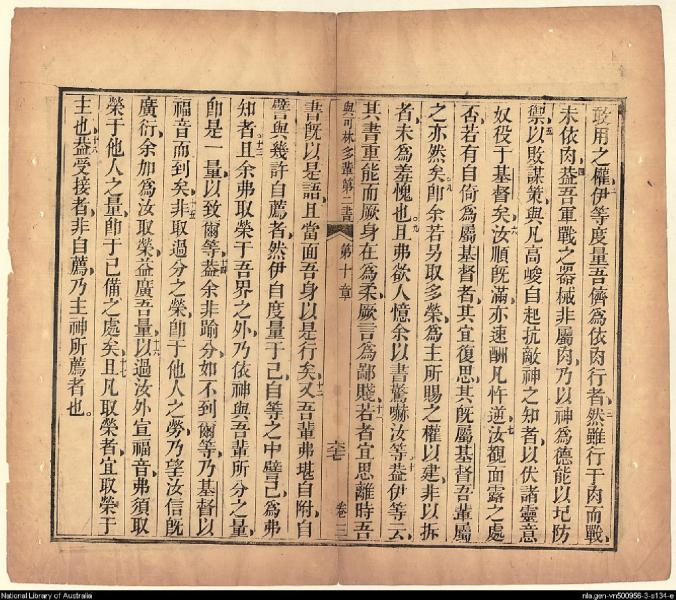 敢用之權伊等度量吾儕為依肉行者然雖行于肉而戰二
未依肉四葢吾軍戰之器械非屬肉乃以神為德能以圮防
禦五以敗謀策與凡高峻自起抗敵神之知者以伏諸靈意
奴役于基督矣六汝順既滿亦速酬凡忤逆七汝觀面露之處
否若有自倚為屬基督者其宜復思其既屬基督吾輩屬
之亦然矣八卽余若另取多榮為主所賜之權以建非以拆
者未為羞愧也九且弗欲人憶余以書驚嚇汝等十葢伊等云
其書重能而厥身在為柔厥言為鄙賤十一若者宜思離時吾
與可林多輩第二書 第十章 六七 卷三
書既以是語且當面吾身以是行矣十二又吾輩弗堪自附自
譬與幾許自薦者然伊自度量于己自等之中譬己為弗
知者十三且余弗取榮于吾界之外乃依神與吾輩所分之量
卽是一量以致爾等十四葢余非踰分如不到爾等乃基督以
福音而到矣十五非取過分之榮卽于他人之勞乃望汝信既
廣衍余加為汝取榮益廣吾量十六以過汝外宣福音弗須取
榮于他人之量卽于已備之處矣十七且凡取榮者宜取榮于
主也十八葢受接者非自薦乃主神所薦者也。
National Library of Australia
nla.gen-vn500956-3-s134-e